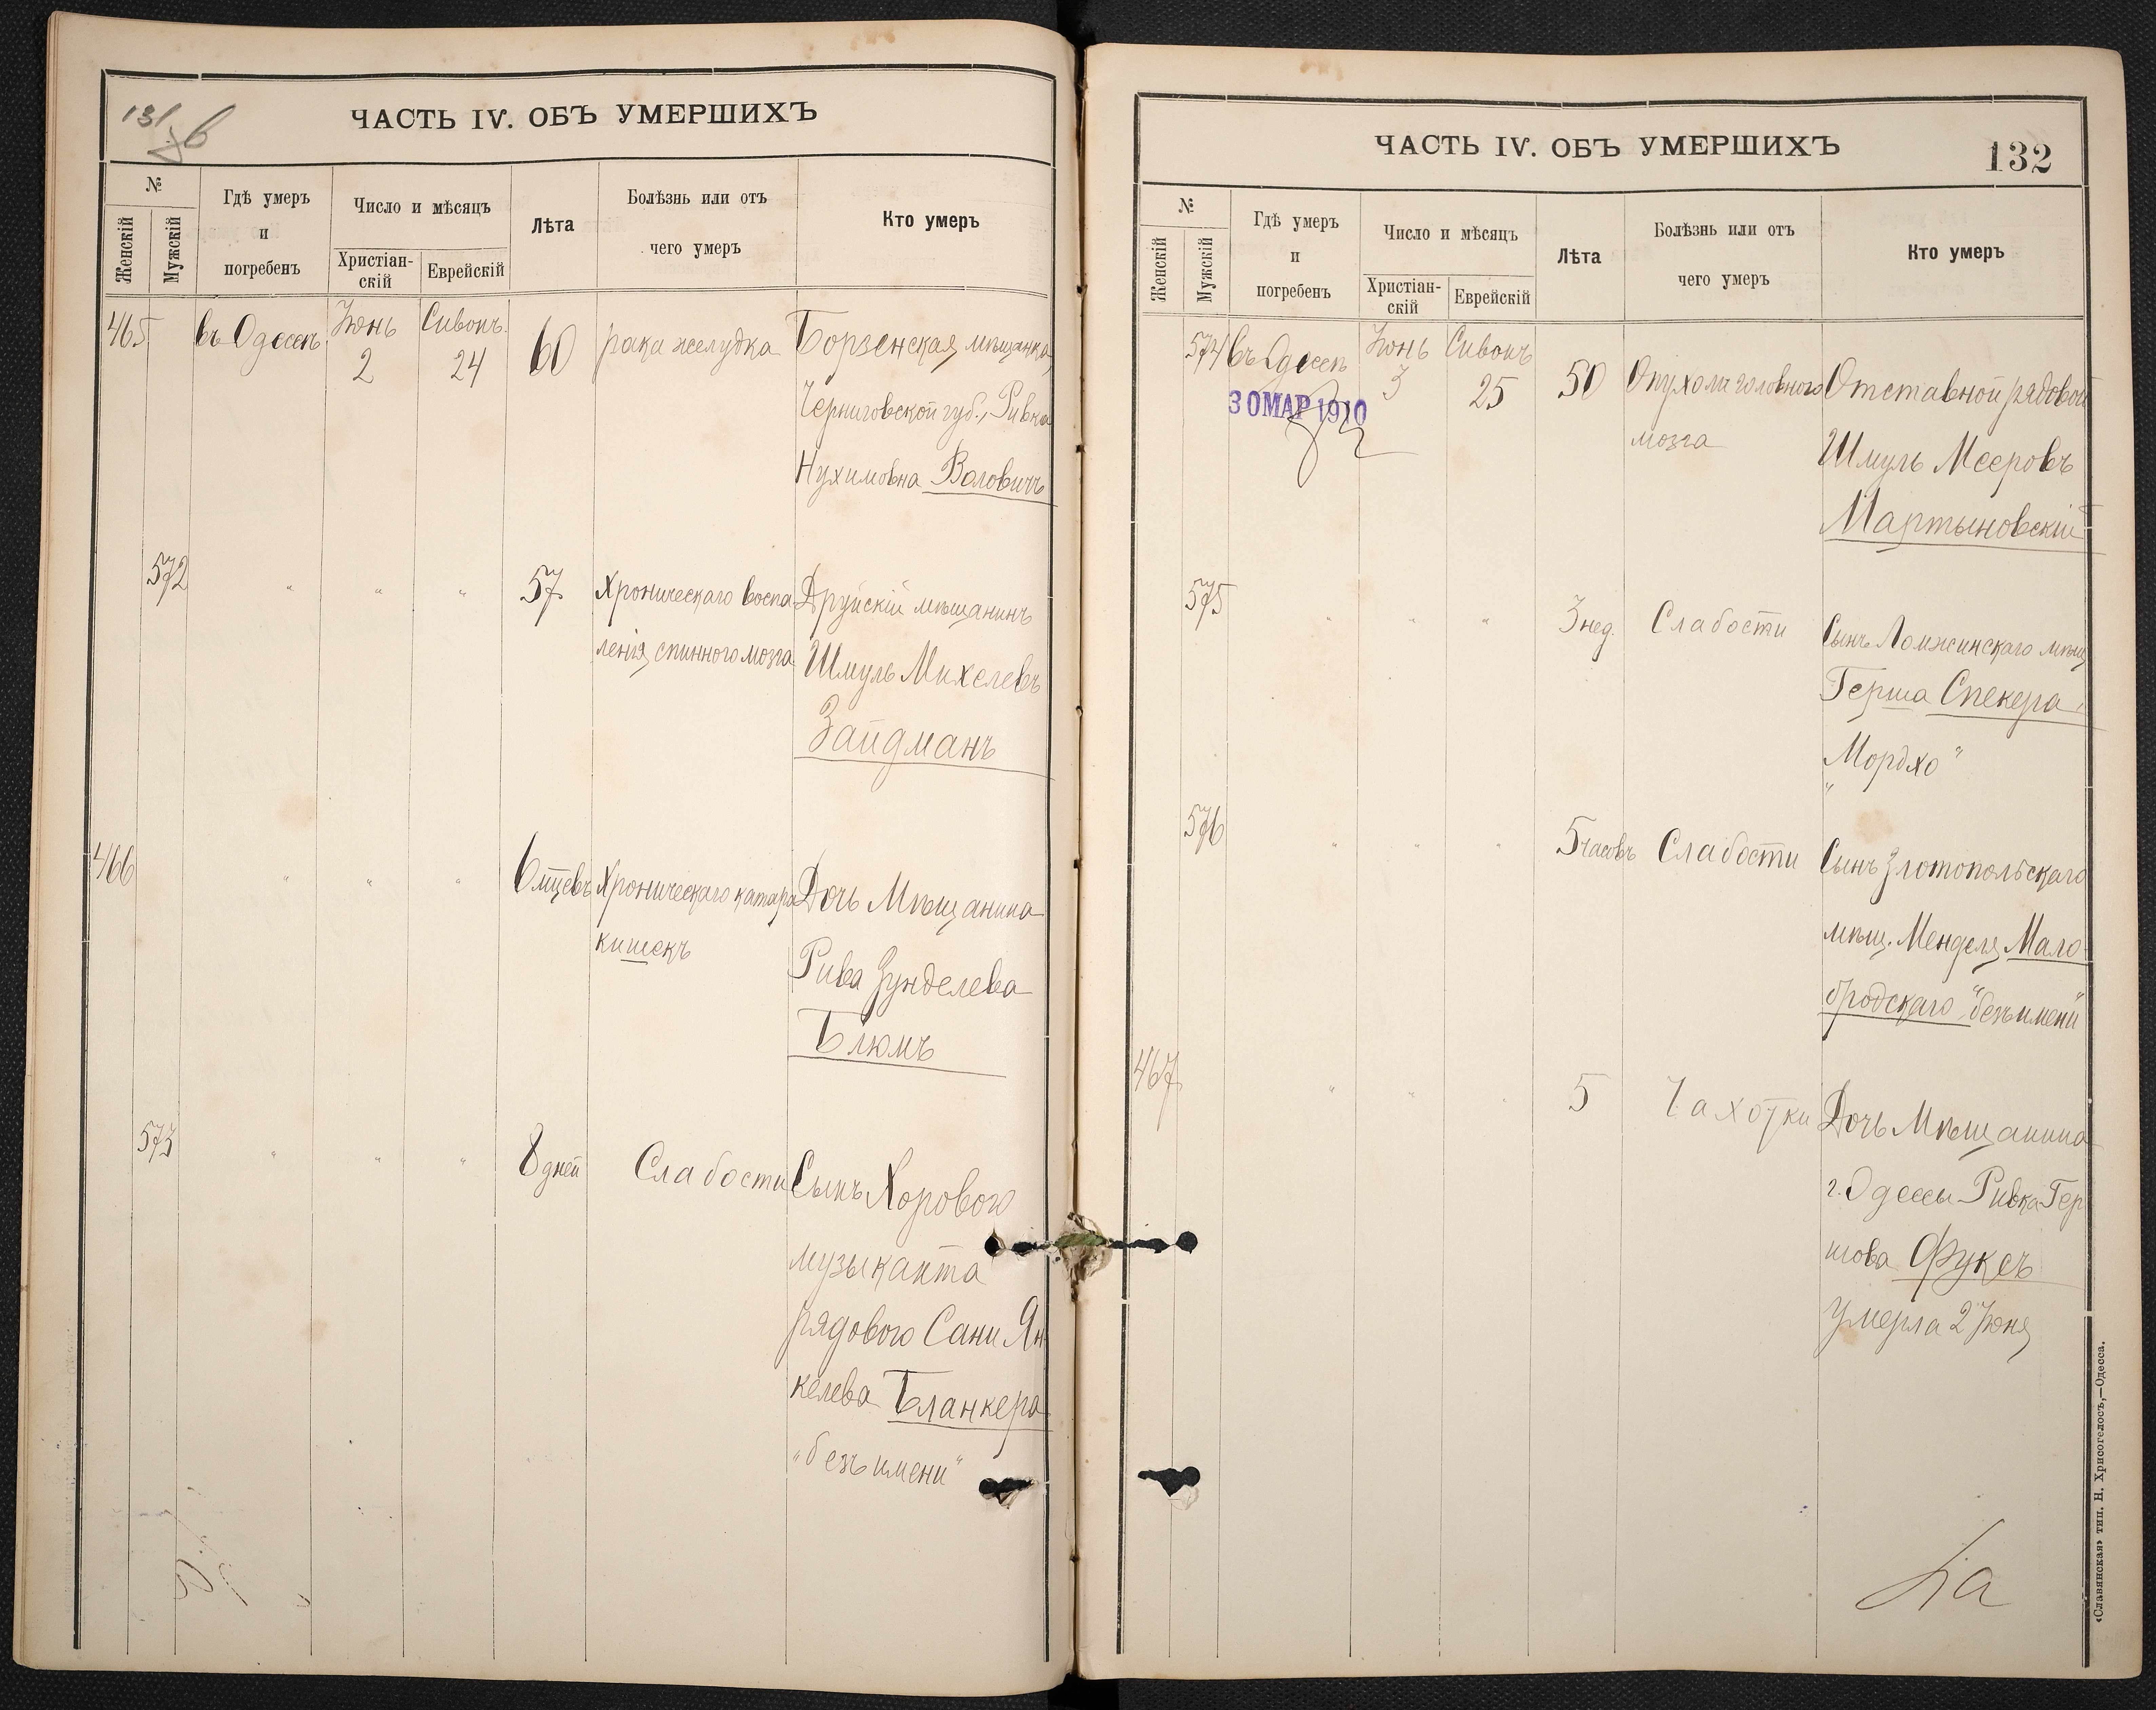 131
ЧАСТЬ IV. ОБЪ УМЕРШИХЪ
№
Женскій
Мужскій
Гдѣ умеръ
и
погребенъ
Число и мѣсяцъ
Христіан-
скій
Еврейскій
Лѣта
Болѣзнь или отъ
чего умеръ
Кто умеръ
465 въ Одессѣ Іюнь Сивонъ 60 рака желудка Борзенская мѣщанка,
2 24 Черниговской губ., Ривка
Нухимовна Воловичъ
572 " " " 57 Хроническаго воспа Друйскій мѣщанинъ
ленія спинного мозга Шмуль Михелевъ
Зайдманъ
466 " " " 6 мцевъ Хроническаго катара Дочь Мѣщанина
кишекъ Рива Зунделева
Блюмъ
573 " " " 8 дней Слабости Сынъ Хорового
музыканта
рядового Сани Ян
келева Бланкера
"безъ имени"
ЧАСТЬ IV. ОБЪ УМЕРШИХЪ
132
№
Женскій
Мужскій
Гдѣ умеръ
и
погребенъ
Число и мѣсяцъ
Христіан-
скій
Еврейскій
Лѣта
Болѣзнь или отъ
чего умеръ
Кто умеръ
574 въ Одессѣ Іюнь Сивонъ 50 Опухоли головного Отставной рядовой
3 25 мозга
30 МАР 1910
Шмуль Мееровъ
Мартыновскій
575 " " " 3 нед. Слабости Сынъ Ломжинскаго мѣщ
Герша Спекера,
"Мордхо"
576 " " " 5 часовъ Слабости Сынъ Злотопольскаго
мѣщ. Менделя Мало-
бродскаго "безъ имени"
467 " " " 5 Чахотки Дочь Мѣщанина
г. Одессы Ривка Гер
шова Фуксъ
умерла 2 Іюня
«Славянская» тип. Н. Хрисогелосъ,—Одесса.